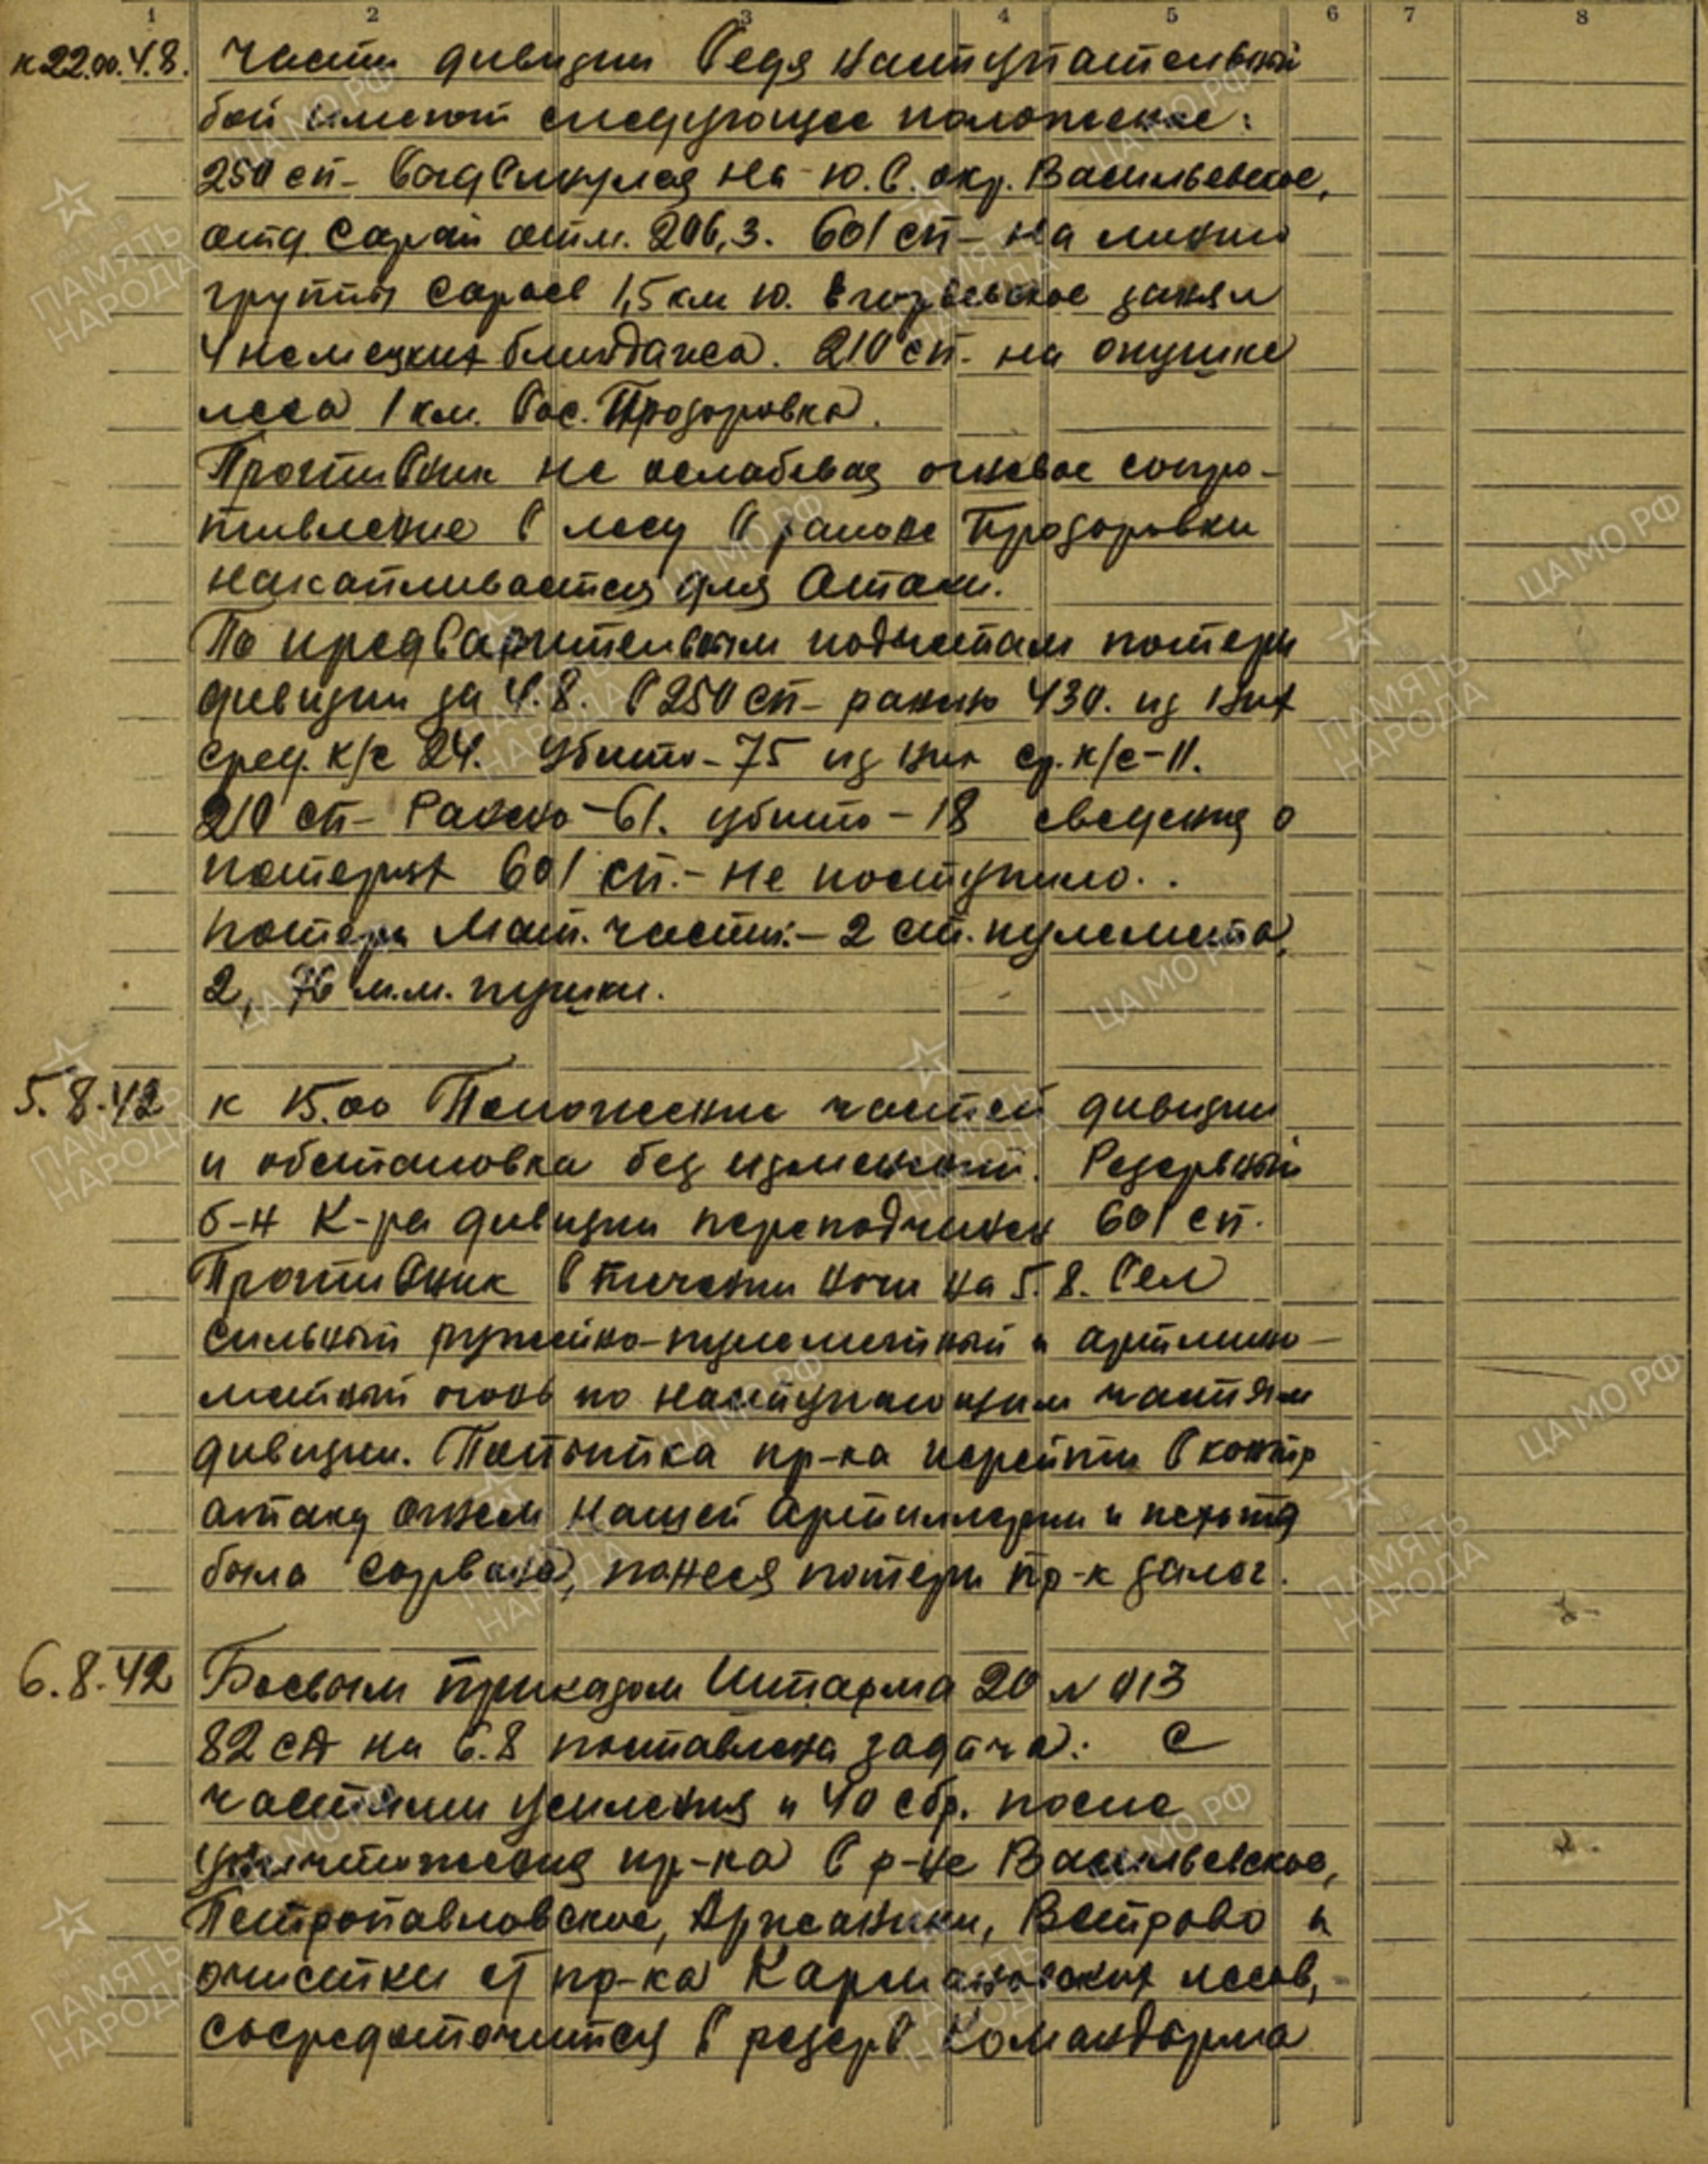 1 2 3 4 5 6 7 8
к 22.00. 4.8. Части дивизии ведя наступательный
бой имеют следующее положение:
250 сп – выдвинулся на ю.в. окр. Васильевское,
отд. сарай отм. 206,3. 601 сп – на линии
группы сараев 1,5 км ю. занял
4 немецких блиндажа. 210 сп. – на опушке
леса 1 км. вос. Прозоровка.
Противник не ослабевая огневое сопро-
тивление в лесу в районе Прозоровки
накапливается для атаки.
По предварительным подсчетам потери
дивизии за 4.8. в 250 сп – ранено 430. из них
сред. к/с 24. Убито – 75 из них ср. к/с – 11.
210 сп – Ранено – 61. убито – 18 сведения о
потерях 601 сп. – не поступило.
потери Мат. части: – 2 ст. пулемета,
2, 76 м.м. пушки.
5.8.42 к 15.00 Положение частей дивизии
и обстановка без изменений. Резервный
б-н К-ра дивизии переподчинен 601 сп.
Противник в течении ночи на 5.8. вел
сильный ружейно-пулеметный и артмино-
метный огонь по наступающим частям
дивизии. Попытка пр-ка перейти в контр
атаку огнем нашей артиллерии и пехоты
была сорвана, понеся потери пр-к залег.
6.8.42 Боевым приказом Штарма 20 № 013
82 сд на 6.8 поставлена задача: С
частями усиления и 40 сбр. после
уничтожения пр-ка в р-не Васильевское,
Петропавловское, Аржаники, Ветрово и
очистки от пр-ка Кармановских лесов,
сосредоточится в резерв Командарма
ПАМЯТЬ НАРОДА
ЦАМО РФ